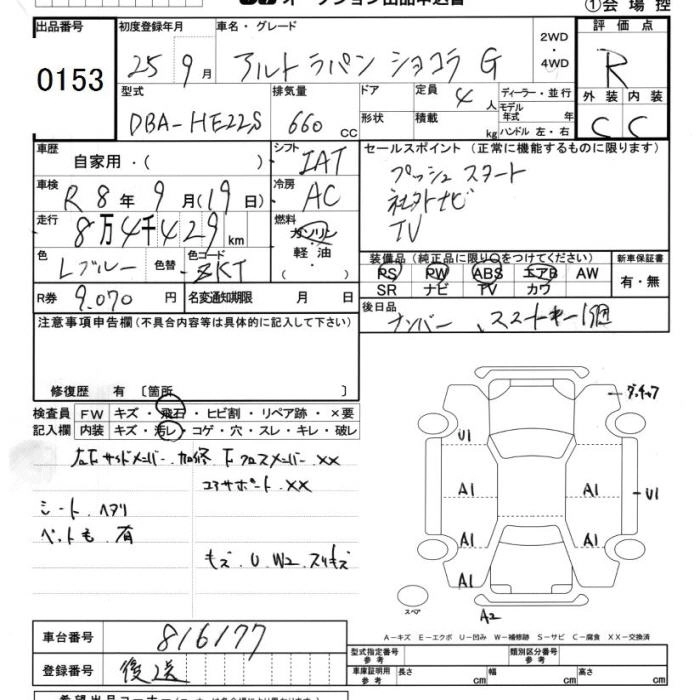 オークション出品申込書
①会場控
出品番号
0153
初度登録年月
25 9月
車名・グレード
アルト ラパン ショコラ G
2WD
・
4WD
評価点
R
型式
DBA-HE22S
排気量
660 CC
ドア
形状
定員 4 人
積載 kg
ディーラー・並行
モデル年式 年
ハンドル 左・右
外装 内装
C C
車歴
自家用・( )
シフト
IAT
セールスポイント (正常に機能するものに限ります)
プッシュスタート
社外ナビ
TV
車検
R 8年 9月(19日)
冷房
AC
走行
8万4千429km
燃料
ガソリン
・軽油
・( )
色
Lブルー
色替
色コード
ZKT
装備品(純正品に限り○をつけてください)
PS PW ABS エアB AW
SR ナビ TV カワ
新車保証書
有・無
R券
9,070円
名変通知期限 月 日
後日品
ナンバー、スマートキー1個
注意事項申告欄(不具合内容等は具体的に記入して下さい)
修復歴 有 〔箇所 〕
検査員
記入欄
FW キズ・飛石・ヒビ割・リペア跡・×要
内装 キズ・汚レ・コゲ・穴・スレ・キレ・破レ
左F サイドメンバー 加修 F クロスメンバー XX
コアサポート XX
シート ヘタリ
ペットも 有
キズ・U・W2・スリキズ
U1
A1
A1
A1
A1
A1
U1
A2
スペア
A-キズ E-エクボ U-凹み W-補修跡 S-サビ C-腐食 XX-交換済
車台番号
816177
登録番号
後送
型式指定番号
参考
類別区分番号
参考
車庫証明用
参考
長さ cm
幅 cm
高さ cm